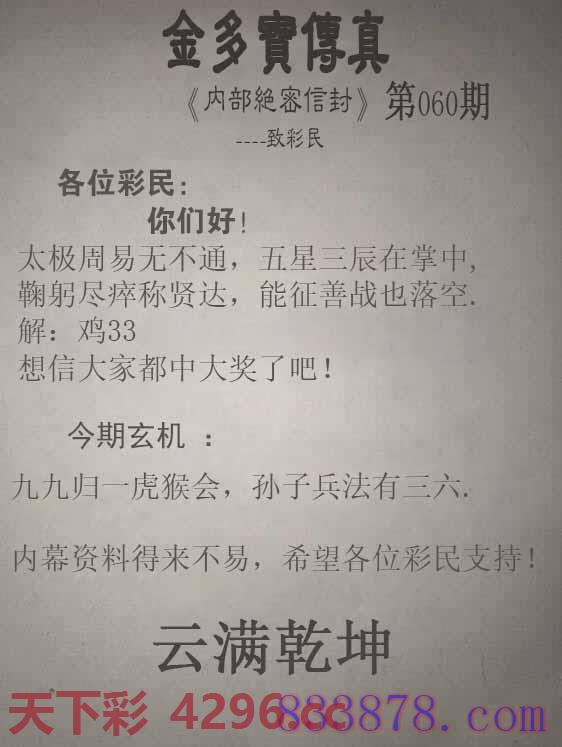 金多寶傳真
《内部絶密信封》第060期
----致彩民
各位彩民:
你们好!
太极周易无不通，五星三辰在掌中,
鞠躬尽瘁称贤达，能征善战也落空.
解：鸡33
想信大家都中大奖了吧！
今期玄机 ：
九九归一虎猴会，孙子兵法有三六.
内幕资料得来不易，希望各位彩民支持！
云满乾坤
天下彩 4296.cc
883878.com